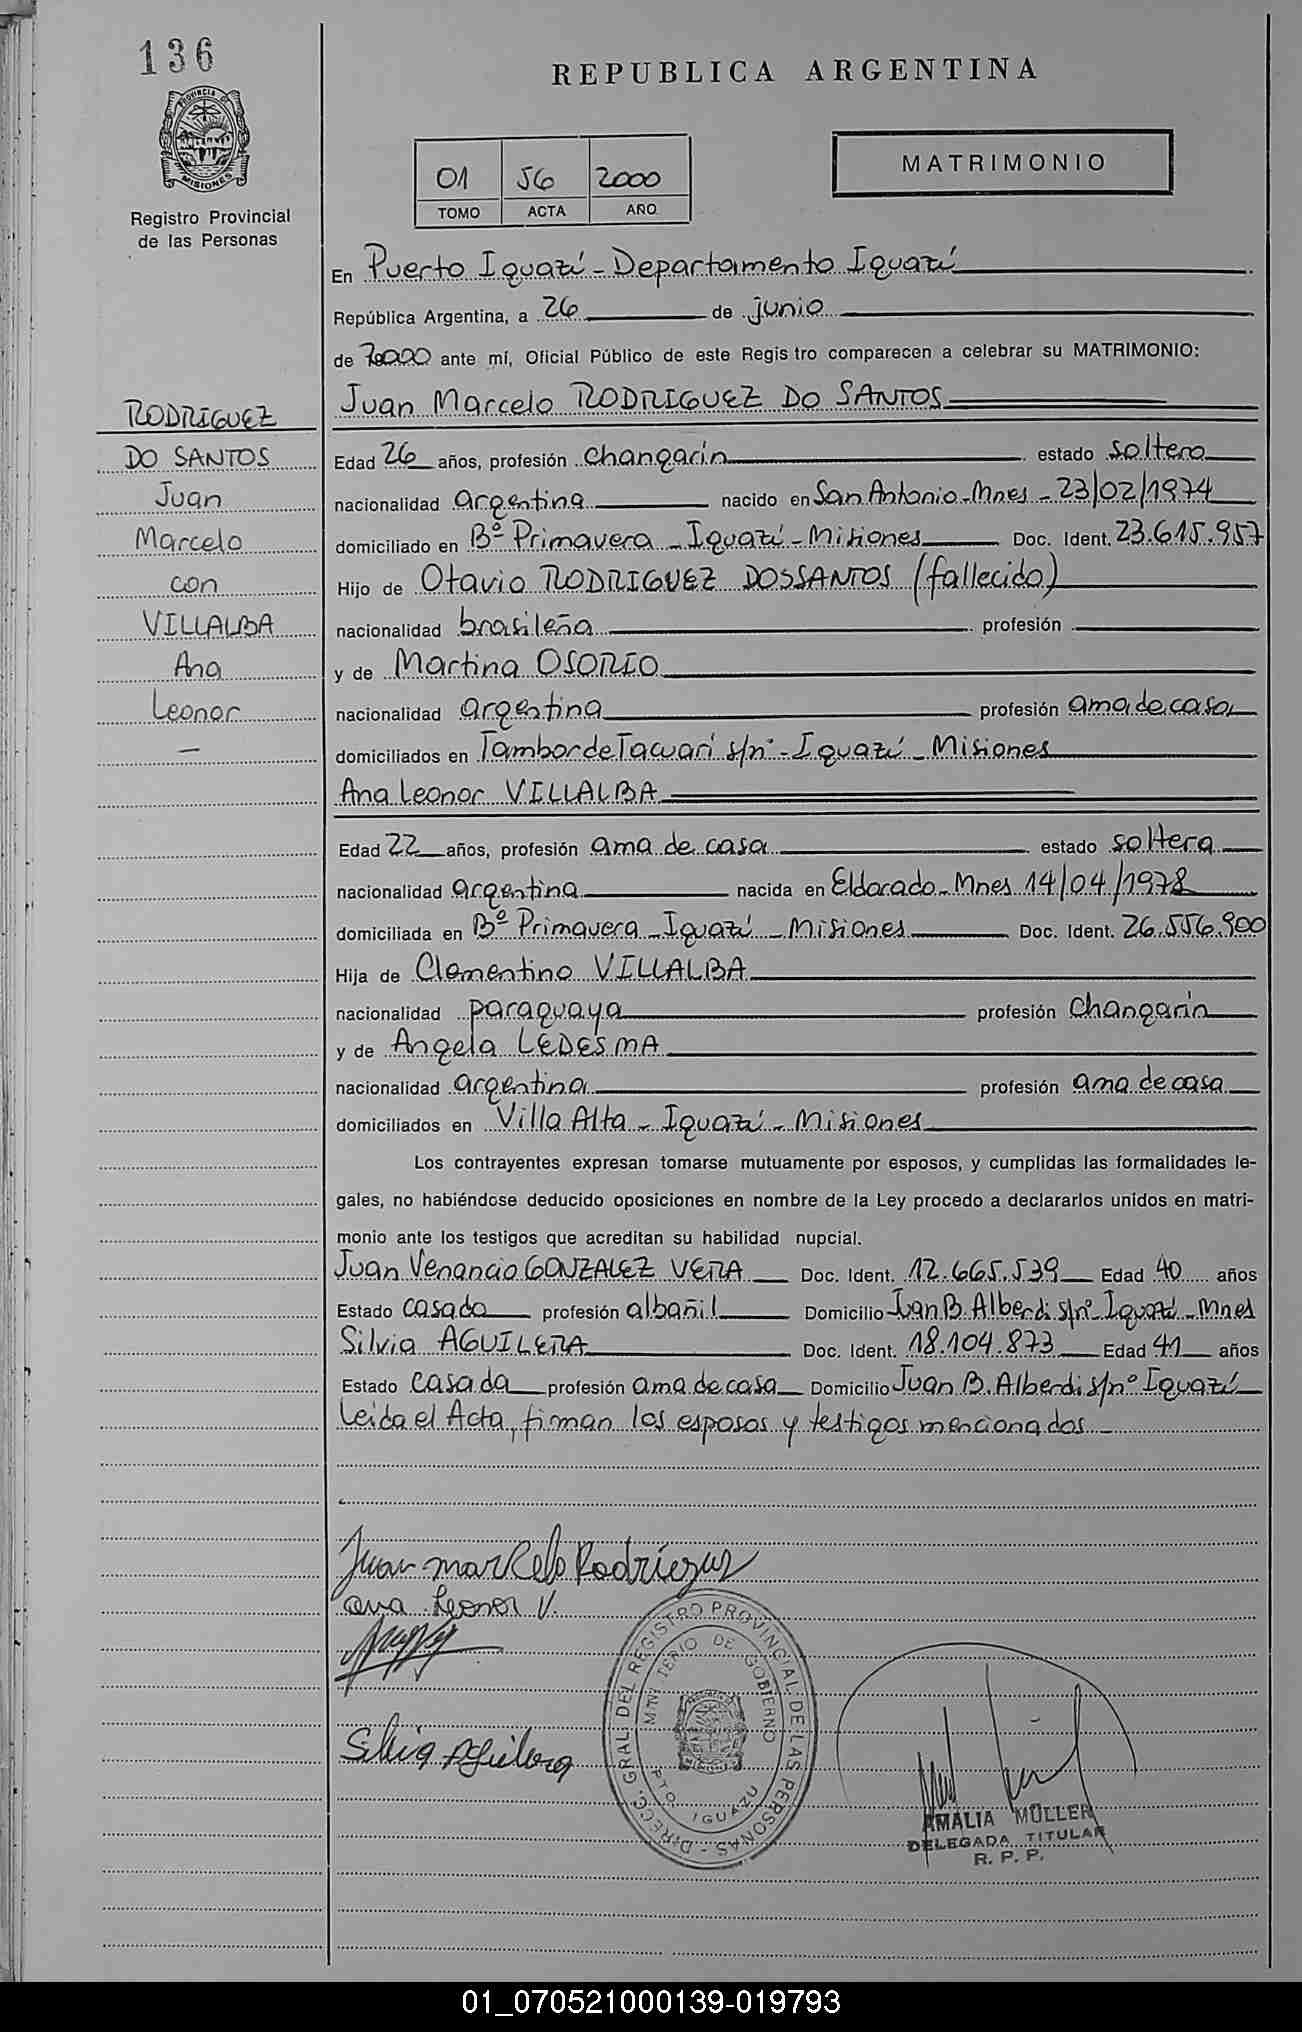 136
REPUBLICA ARGENTINA
PROVINCIA
MISIONES
Registro Provincial
de las Personas
01 56 2000
TOMO ACTA AÑO
MATRIMONIO
En Puerto Iguazú - Departamento Iguazú
República Argentina, a 26 de junio
de 2000 ante mí, Oficial Público de este Regis tro comparecen a celebrar su MATRIMONIO:
Juan Marcelo RODRIGUEZ DO SANTOS
RODRIGUEZ
DO SANTOS
Juan
Marcelo
con
VILLALBA
Ana
Leonor
—
Edad 26 años, profesión changarín estado soltero
nacionalidad argentina nacido en San Antonio - Mnes - 23/02/1974
domiciliado en Bº Primavera - Iguazú - Misiones Doc. Ident. 23.615.957
Hijo de Otavio RODRIGUEZ DOSSANTOS (fallecido)
nacionalidad brasileña profesión
y de Martina OSORIO
nacionalidad argentina profesión ama de casa
domiciliados en Tambor de Tacuarí s/nº - Iguazú - Misiones
Ana Leonor VILLALBA
Edad 22 años, profesión ama de casa estado soltera
nacionalidad argentina nacida en Eldorado - Mnes 14/04/1978
domiciliada en Bº Primavera - Iguazú - Misiones Doc. Ident. 26.556.900
Hija de Clementino VILLALBA
nacionalidad paraguaya profesión changarín
y de Angela LEDESMA
nacionalidad argentina profesión ama de casa
domiciliados en Villa Alta - Iguazú - Misiones
Los contrayentes expresan tomarse mutuamente por esposos, y cumplidas las formalidades le-
gales, no habiéndose deducido oposiciones en nombre de la Ley procedo a declararlos unidos en matri-
monio ante los testigos que acreditan su habilidad nupcial.
Juan Venancio GONZALEZ VERA Doc. Ident. 12.665.539 Edad 40 años
Estado casado profesión albañil Domicilio Juan B. Alberdi s/nº Iguazú - Mnes
Silvia AGUILERA Doc. Ident. 18.104.873 Edad 41 años
Estado casada profesión ama de casa Domicilio Juan B. Alberdi s/nº Iguazú
Leída el Acta, firman los esposos y testigos mencionados
Juan marcelo Rodriguez
ana Leonor V.
Silvia Aguilera
DIRECC. GRAL. DEL REGISTRO PROVINCIAL DE LAS PERSONAS
MINISTERIO DE GOBIERNO
PTO. IGUAZU
AMALIA MÜLLER
DELEGADA TITULAR
R. P. P.
01_070521000139-019793